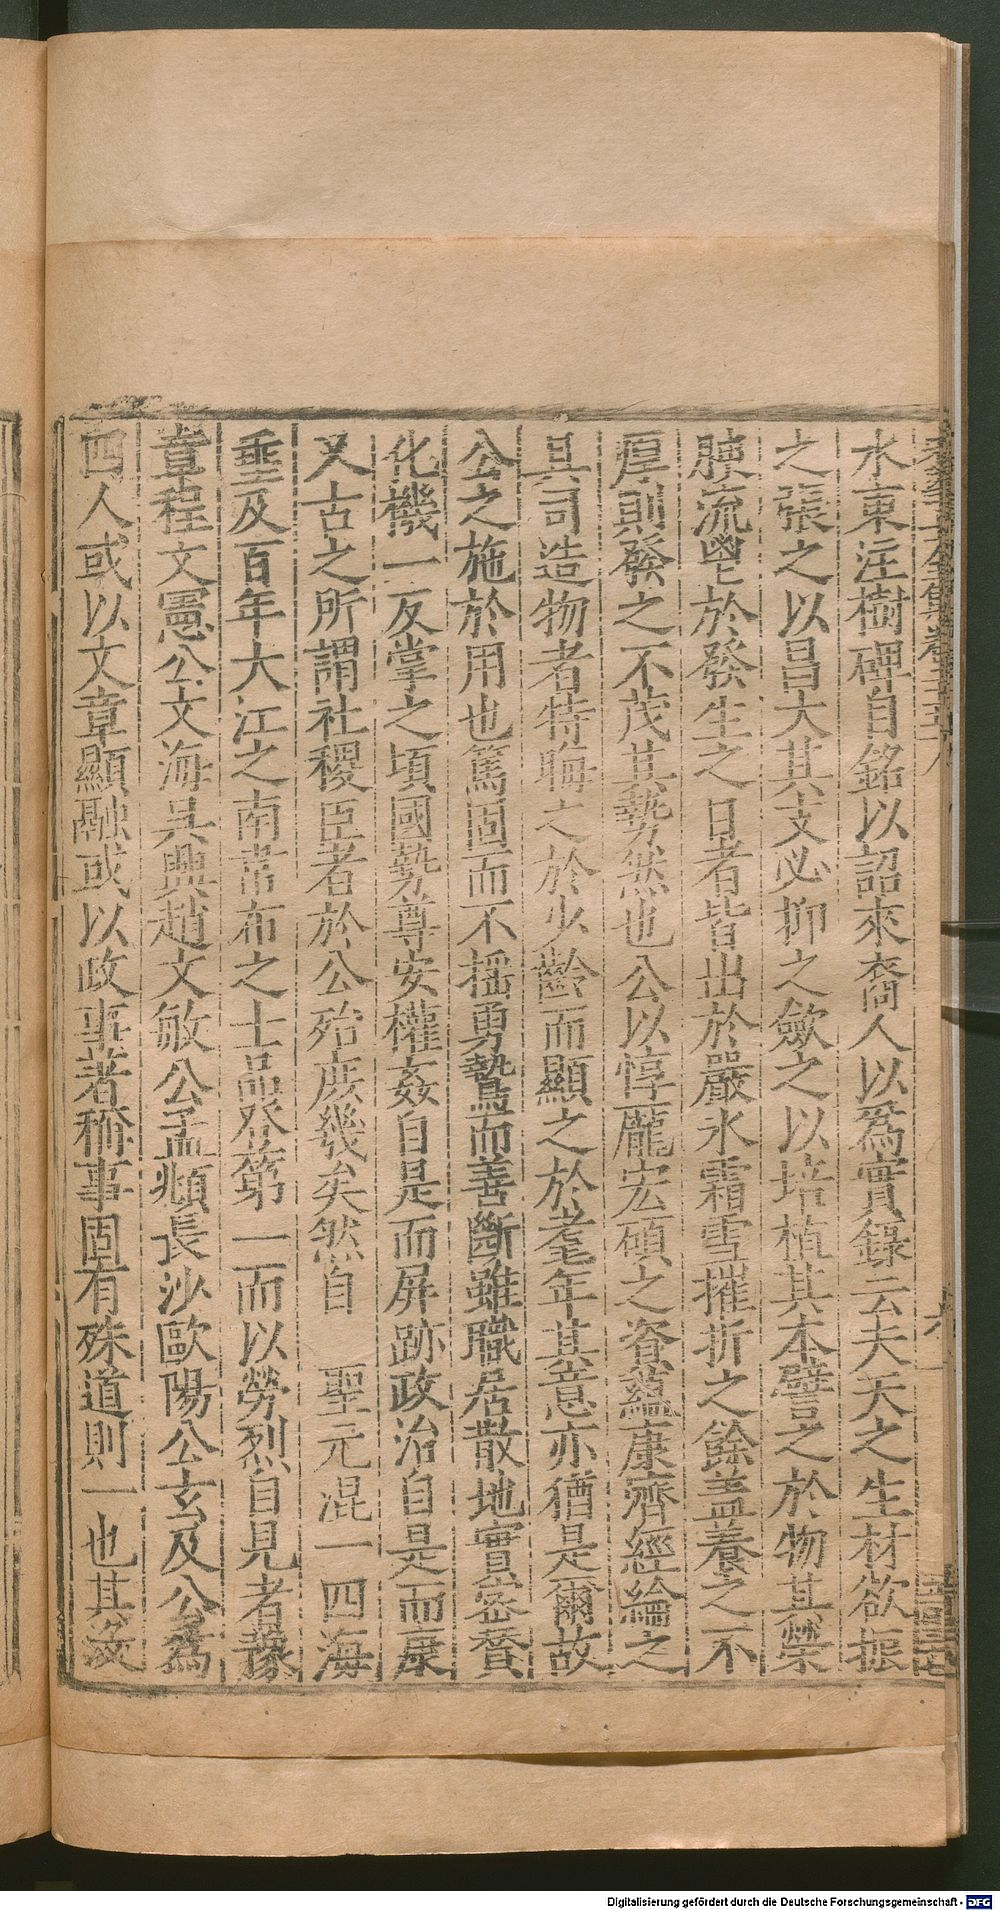 水東注樹碑自銘以詔來裔人以爲實錄云夫天之生材欲振
之張之以昌大其支必抑之歛之以培植其本譬之於物其榮
腴流鬯於發生之日者皆出於嚴氷霜雪摧折之餘蓋養之不
厚則發之不茂其勢然也公以惇龐宏碩之資蘊康濟經綸之
具司造物者特晦之於少齡而顯之於耄年其意亦猶是爾故
公之施於用也篤固而不揺勇鷙而善斷雖職居散地實密賛
化機一反掌之頃國勢尊安權姦自是而屏跡政治自是而康
乂古之所謂社稷臣者於公殆庶幾矣然自　聖元混一四海
垂及百年大江之南韋布之士品登第一而以勞烈自見者豫
章程文憲公文海吳興趙文敏公孟頫長沙歐陽公玄及公爲
四人或以文章顯融或以政事著稱事固有殊道則一也其